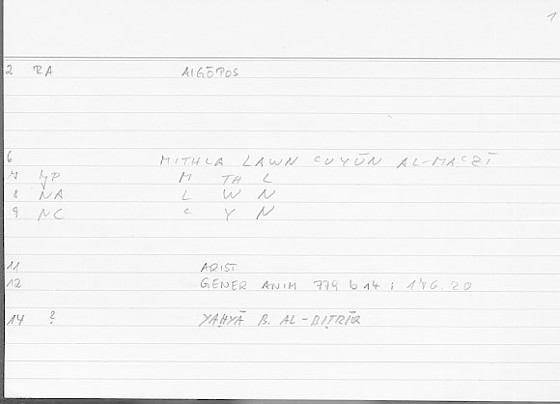 1
2 RA AIGŌPOS
6 MITHLA LAWN ʿUYŪN AL-MAʿZĪ
7 YP M TH L
8 NA L W N
9 NC ʿ Y N
11 ARIST
12 GENER ANIM 779 b 14 ; 176.20
14 ? YAḤYĀ B. AL-BIṬRĪQ